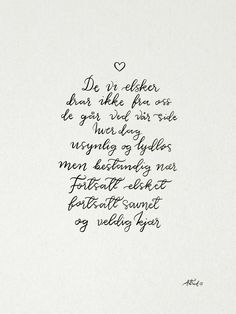 De vi elsker
drar ikke fra oss
de går ved vår side
hver dag
usynlig og lydløs
men bestandig nær
Fortsatt elsket
fortsatt savnet
og veldig kjær